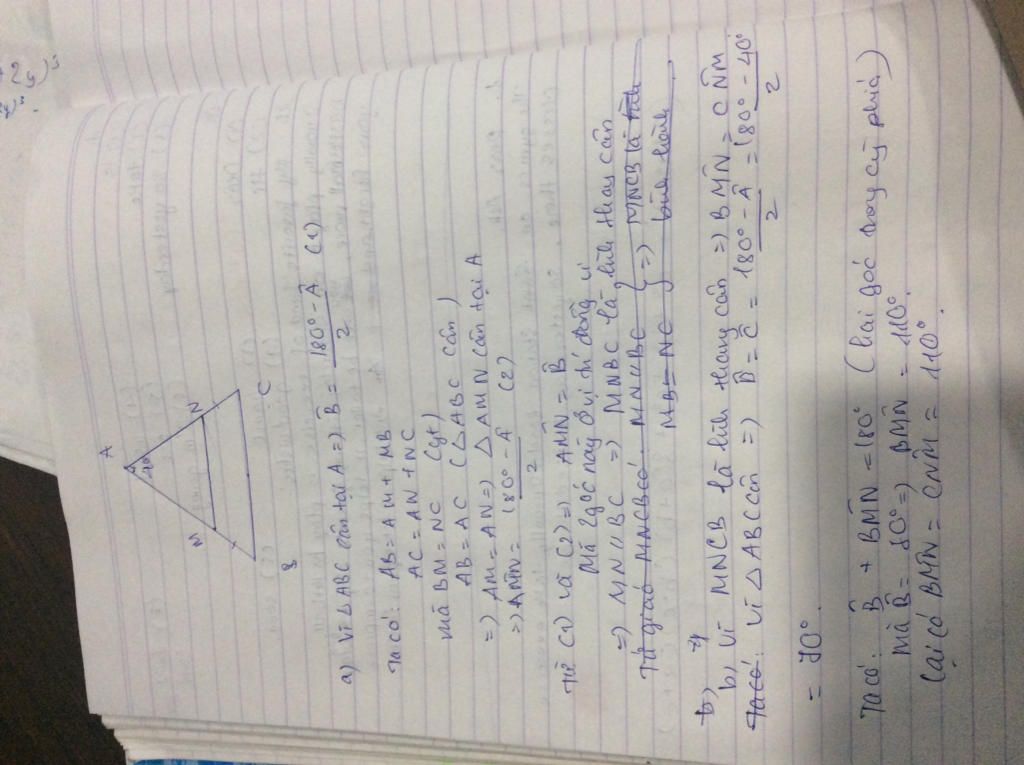 A
40°
M
N
B
C
a) Vì △ABC cân tại A => B̂ = (180° - Â)/2 (1)
Ta có: AB = AM + MB
AC = AN + NC
mà BM = NC (gt)
AB = AC (△ABC cân)
=> AM = AN => △AMN cân tại A
=> AM̂N = (180° - Â)/2 (2)
Từ (1) và (2) => AM̂N = B̂
Mà 2 góc này ở vị trí đồng vị
=> MN // BC => MNBC là hình thang cân
Tứ giác MNCB có: MN // BC } => MNCB là hình
MB = NC bình hành
b)
b) Vì MNCB là hình thang cân => BM̂N = CN̂M
Ta có: Vì △ABC cân => B̂ = Ĉ = (180° - Â)/2 = (180° - 40°)/2
= 70°.
Ta có: B̂ + BM̂N = 180° (hai góc trong cùng phía)
Mà B̂ = 70° => BM̂N = 110°.
Lại có BM̂N = CN̂M = 110°.